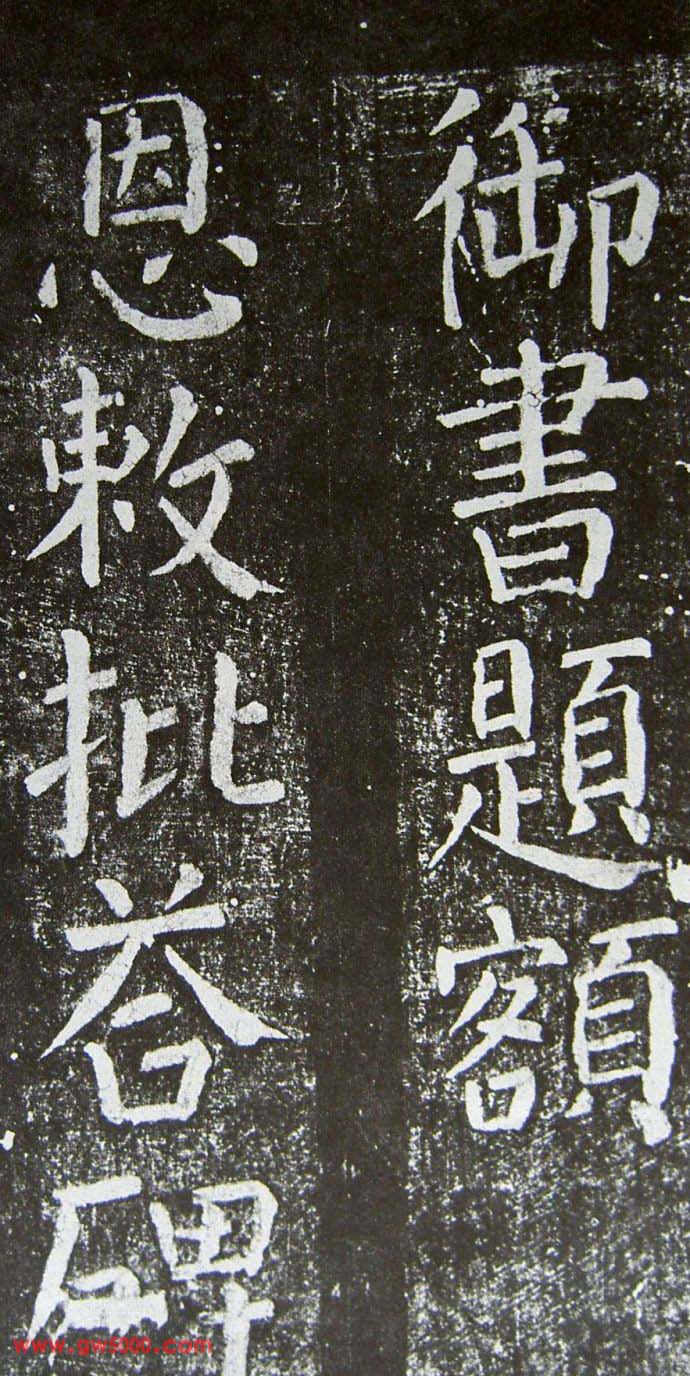 御書題額
恩敕批荅碑
www.gw5000.com